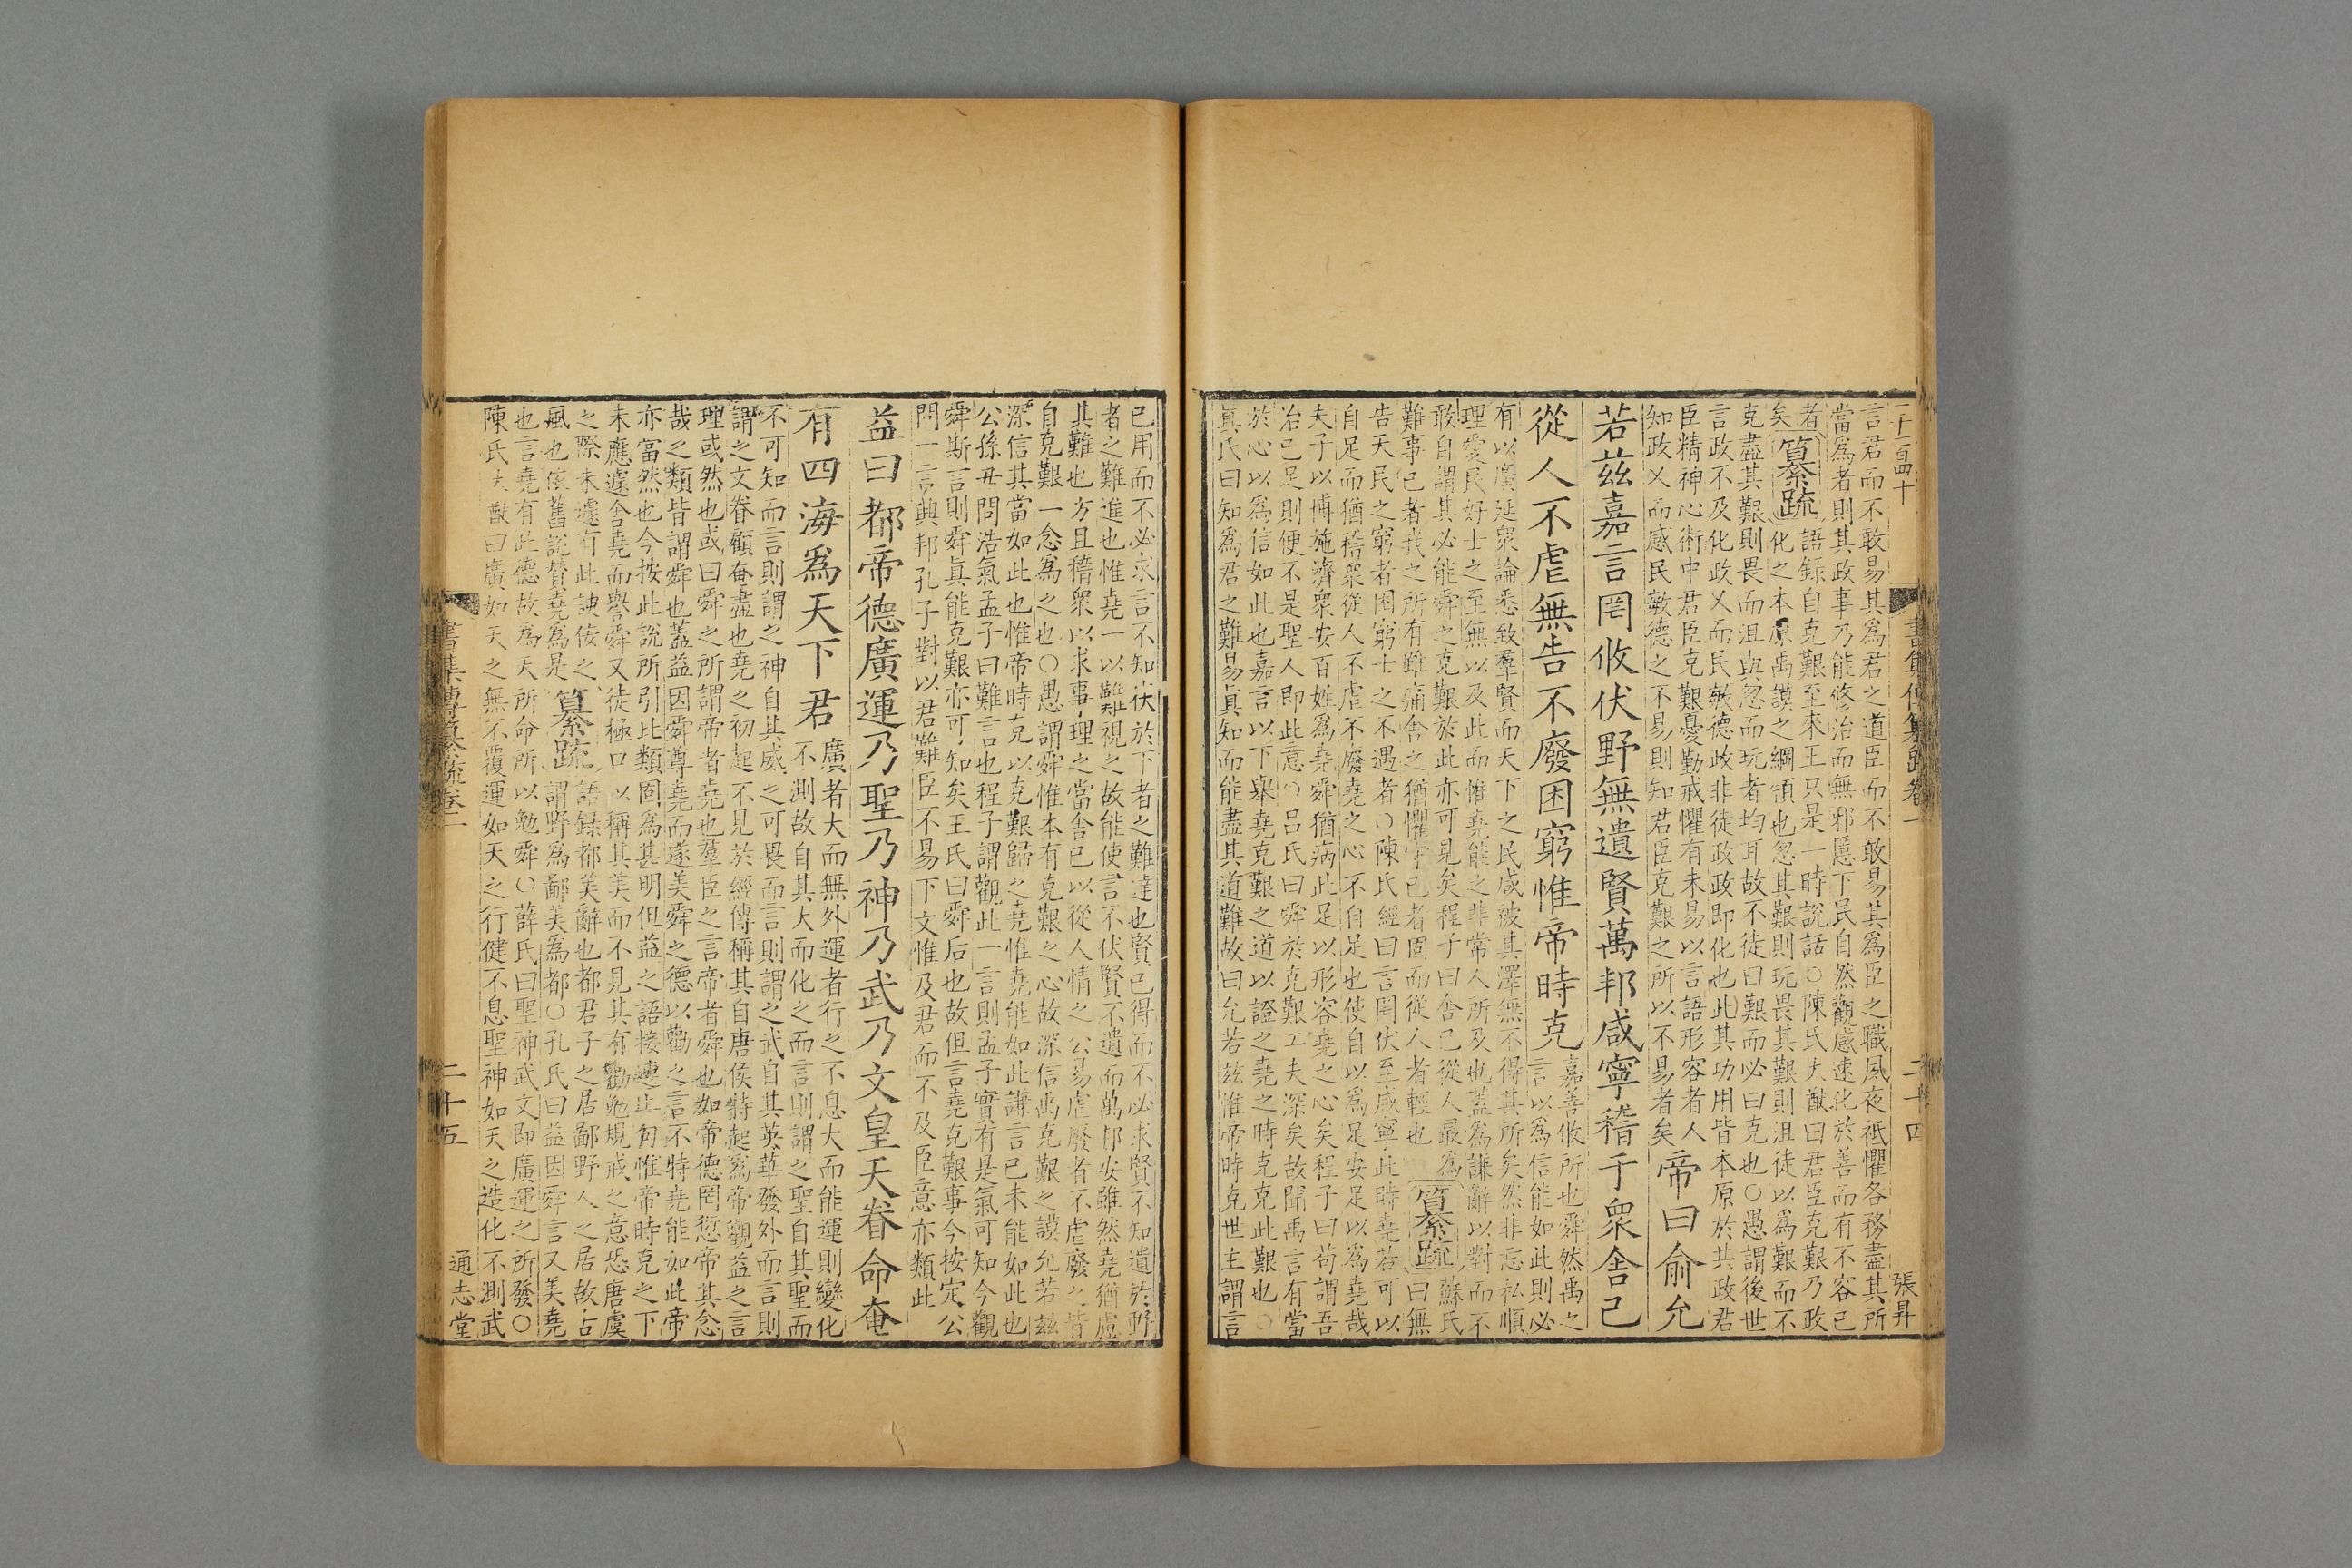 二千三百四十
書集傳纂疏卷一
二十四
張昇
言君而不敢易其爲君之道臣而不敢易其爲臣之職夙夜祗懼各務盡其所
當爲者則其政事乃能修治而無邪慝下民自然觀感速化於善而有不容已
者
矣
纂疏
語録自克艱至來王只是一時說話○陳氏大猷曰君臣克艱乃政
化之本原禹謨之綱領也忽其艱則玩畏其艱則沮徒以爲艱而不
克盡其艱則畏而沮與忽而玩者均耳故不徒曰艱而必曰克也○愚謂後世
言政不及化政乂而民敏德政非徒政政即化也此其功用皆本原於共政君
臣精神心術中君臣克艱憂勤戒懼有未易以言語形容者人
知政乂而感民敏德之不易則知君臣克艱之所以不易者矣
帝曰俞允
若茲嘉言罔攸伏野無遺賢萬邦咸寧稽于衆舍己
從人不虐無告不廢困窮惟帝時克
嘉善攸所也舜然禹之
言以爲信能如此則必
有以廣延衆論悉致羣賢而天下之民咸被其澤無不得其所矣然非忘私順
理愛民好士之至無以及此而惟堯能之非常人所及也蓋爲謙辭以對而不
敢自謂其必能舜之克艱於此亦可見矣程子曰舍己從人最爲
難事己者我之所有雖痛舍之猶懼守己者固而從人者輕也
纂疏
蘇氏
曰無
告天民之窮者困窮士之不遇者○陳氏經曰言罔伏至咸寧此時堯若可以
自足而猶稽衆從人不虐不廢堯之心不自足也使自以爲足安足以爲堯哉
夫子以博施濟衆安百姓爲堯舜猶病此足以形容堯之心矣程子曰苟謂吾
治已足則便不是聖人即此意○呂氏曰舜於克艱工夫深矣故聞禹言有當
於心以爲信如此也嘉言以下舉堯克艱之道以證之堯之時克克此艱也○
眞氏曰知爲君之難易眞知而能盡其道難故曰允若茲惟帝時克世主謂言
已用而不必求言不知伏於下者之難達也賢已得而不必求賢不知遺於野
者之難進也惟堯一以難視之故能使言不伏賢不遺而萬邦安雖然堯猶慮
其難也方且稽衆以求事理之當舍己以從人情之公易虐廢者不虐廢之皆
自克艱一念爲之也○愚謂舜惟本有克艱之心故深信禹克艱之謨允若茲
深信其當如此也惟帝時克以克艱歸之堯惟堯能如此謙言己未能如此也
公孫丑問浩氣孟子曰難言也程子謂觀此一言則孟子實有是氣可知今觀
舜斯言則舜眞能克艱亦可知矣王氏曰舜后也故但言堯克艱事今按定公
問一言興邦孔子對以君難臣不易下文惟及君而不及臣意亦類此
益曰都帝德廣運乃聖乃神乃武乃文皇天眷命奄
有四海爲天下君
廣者大而無外運者行之不息大而能運則變化
不測故自其大而化之而言則謂之聖自其聖而
不可知而言則謂之神自其威之可畏而言則謂之武自其英華發外而言則
謂之文眷顧奄盡也堯之初起不見於經傳稱其自唐侯特起爲帝觀益之言
理或然也或曰舜之所謂帝者堯也羣臣之言帝者舜也如帝德罔愆帝其念
哉之類皆謂舜也蓋益因舜尊堯而遂美舜之德以勸之言不特堯能如此帝
亦當然也今按此說所引此類固爲甚明但益之語接連上句惟帝時克之下
未應遽舍堯而譽舜又徒極口以稱其美而不見其有勸勉規戒之意恐唐虞
之際未遽有此諛佞之
風也依舊說贊堯爲是
纂疏
語録都美辭也都君子之居鄙野人之居故古
謂野爲鄙美爲都○孔氏曰益因舜言又美堯
也言堯有此德故爲天所命所以勉舜○薛氏曰聖神武文即廣運之所發○
陳氏大猷曰廣如天之無不覆運如天之行健不息聖神如天之造化不測武
書集傳纂疏卷二
二十五
通志堂